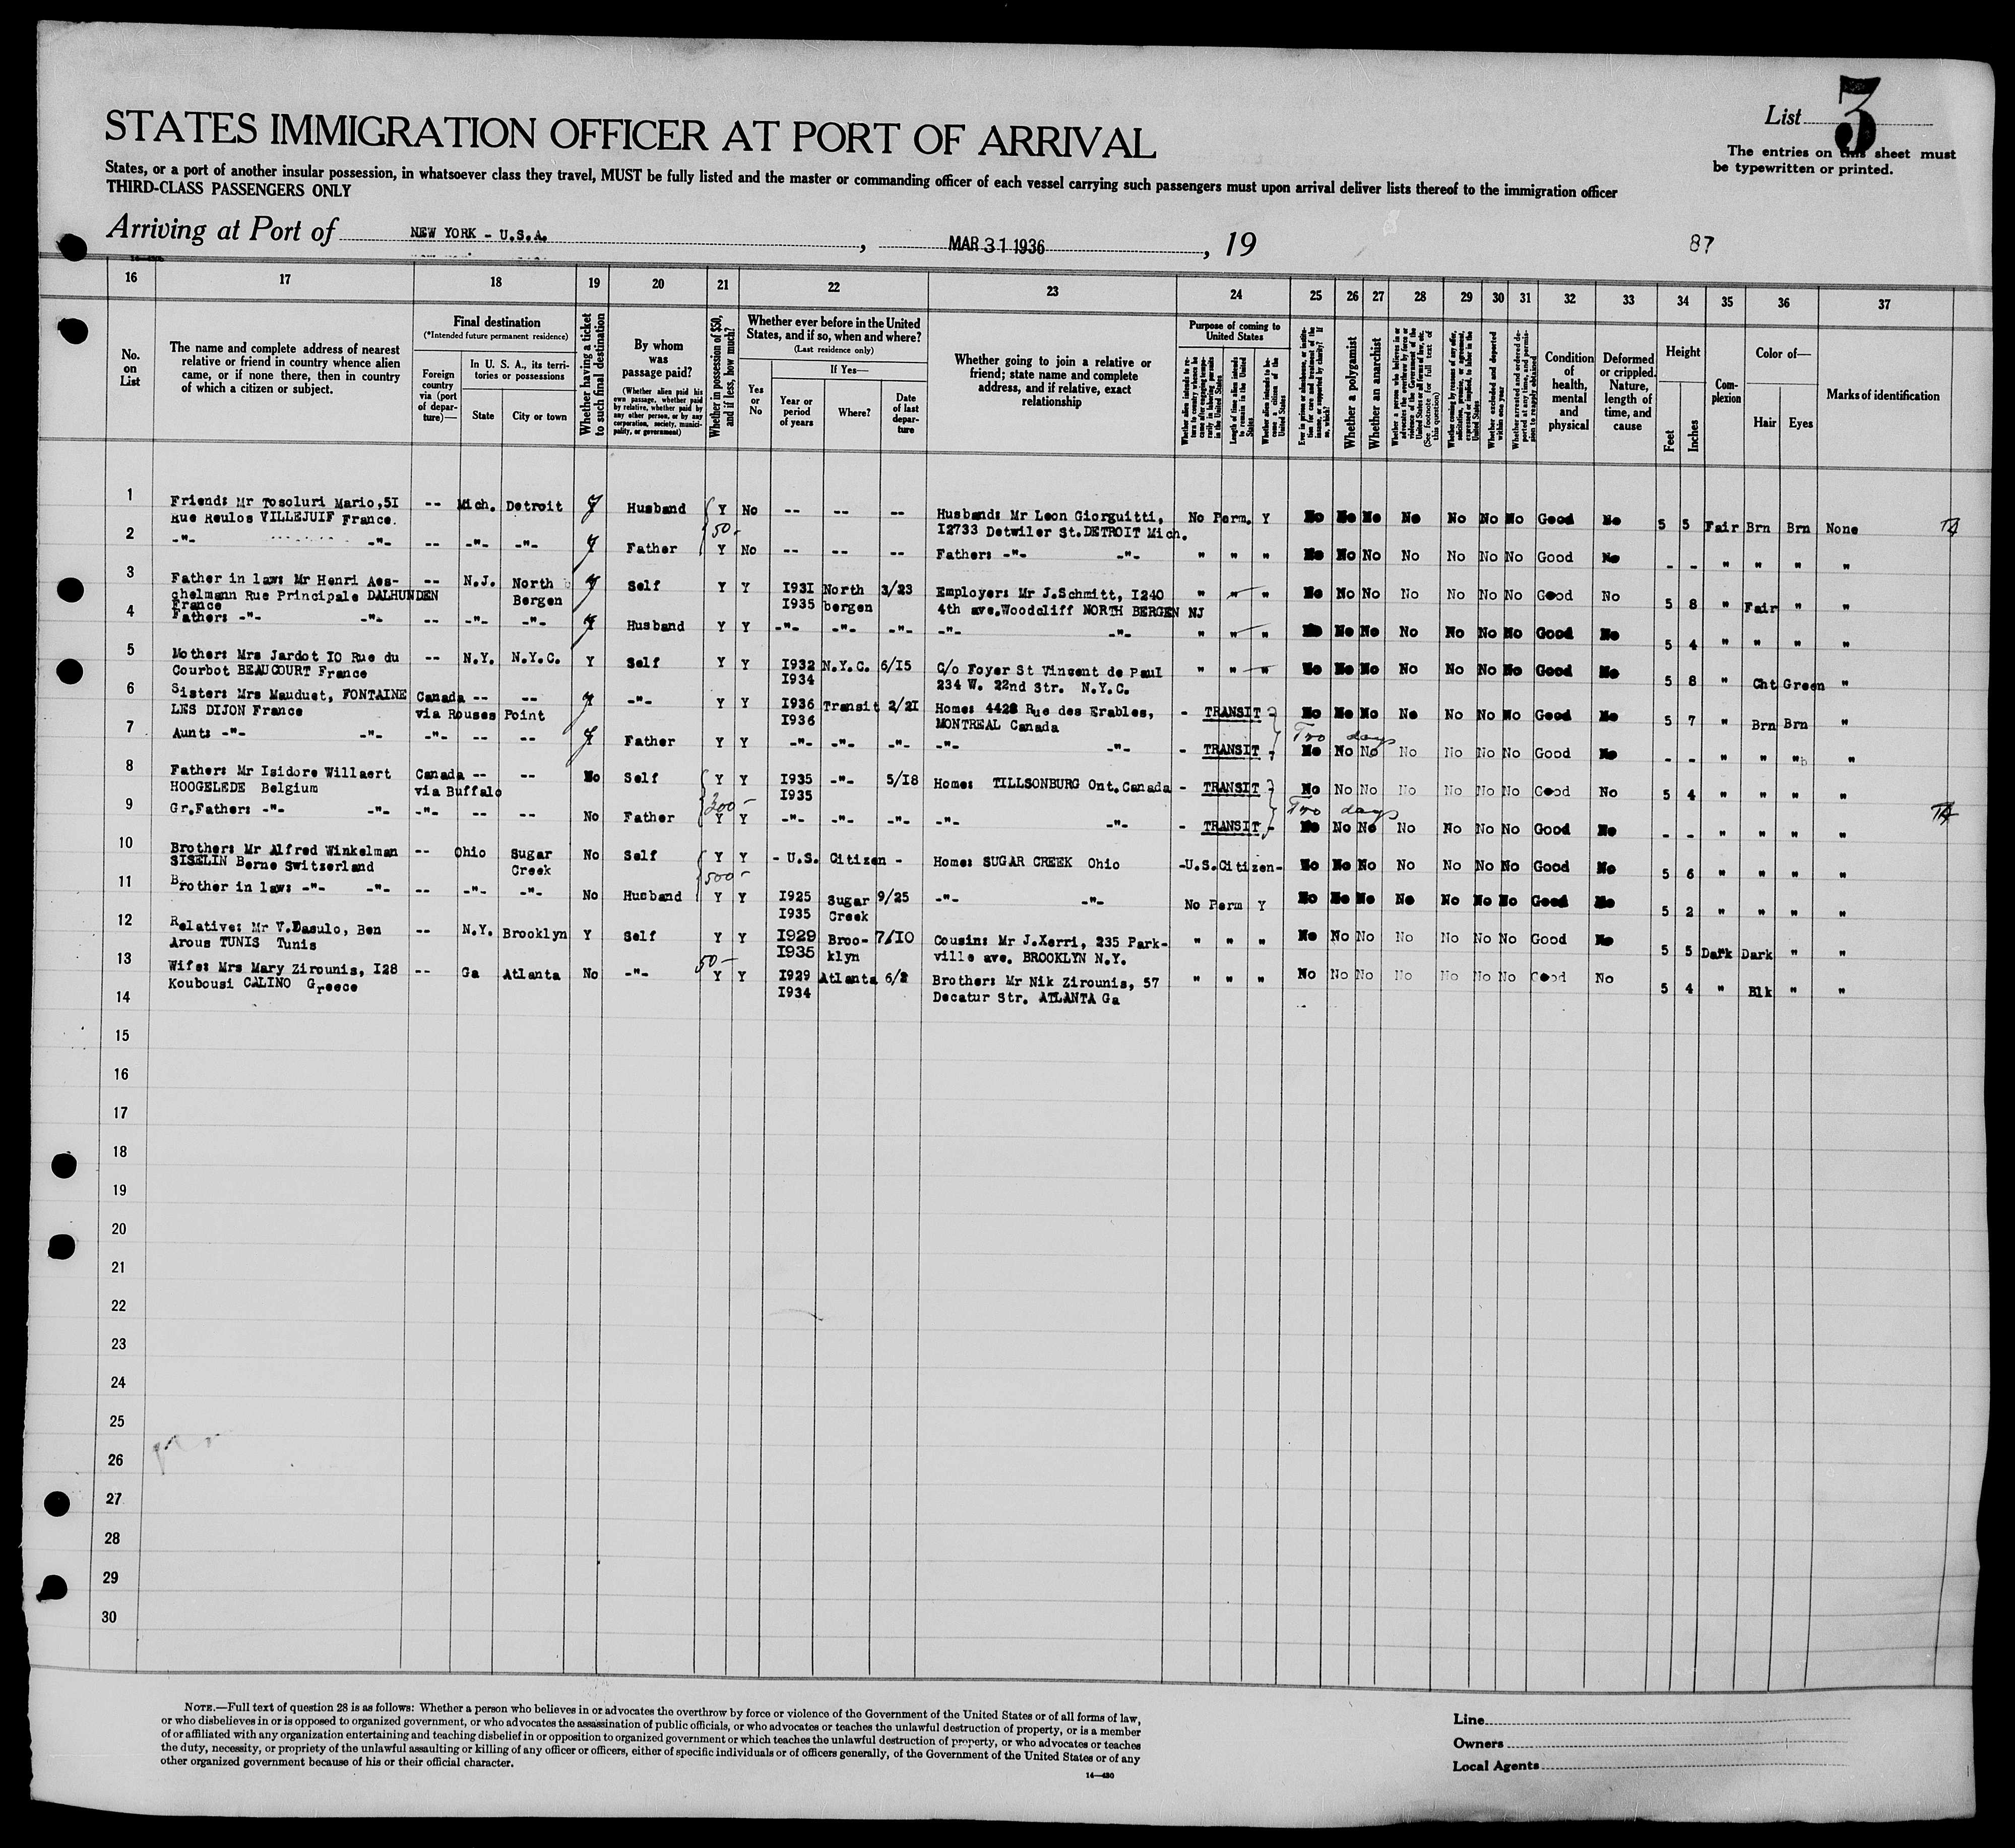 List 3
STATES IMMIGRATION OFFICER AT PORT OF ARRIVAL
The entries on this sheet must
be typewritten or printed.
States, or a port of another insular possession, in whatsoever class they travel, MUST be fully listed and the master or commanding officer of each vessel carrying such passengers must upon arrival deliver lists thereof to the immigration officer
THIRD-CLASS PASSENGERS ONLY
Arriving at Port of NEW YORK - U.S.A. , MAR 31 1936 , 19 87
16 17 18 19 20 21 22 23 24 25 26 27 28 29 30 31 32 33 34 35 36 37
No. on List
The name and complete address of nearest relative or friend in country whence alien came, or if none there, then in country of which a citizen or subject.
Final destination
(*Intended future permanent residence)
Foreign country via (port of departure)—
In U. S. A., its territories or possessions
State City or town
Whether having a ticket to such final destination
By whom was passage paid?
(Whether alien paid his own passage, whether paid by relative, whether paid by any other person, or by any corporation, society, municipality, or government)
Whether in possession of $50, and if less, how much?
Whether ever before in the United States, and if so, when and where?
(Last residence only)
Yes or No
If Yes—
Year or period of years Where? Date of last departure
Whether going to join a relative or friend; state name and complete address, and if relative, exact relationship
Purpose of coming to United States
Whether alien intends to return to country whence he came after engaging temporarily in laboring pursuits in the United States
Length of time alien intends to remain in the United States
Whether alien intends to become a citizen of the United States
Ever in prison or almshouse, or institution for care and treatment of the insane, or supported by charity? If so, which?
Whether a polygamist
Whether an anarchist
Whether a person who believes in or advocates the overthrow by force or violence of the Government of the United States or all forms of law, etc. (See footnote for full text of this question)
Whether coming by reason of any offer, solicitation, promise, or agreement, expressed or implied, to labor in the United States
Whether excluded and deported within one year
Whether arrested and ordered deported at any time, and permission to reapply obtained
Condition of health, mental and physical
Deformed or crippled. Nature, length of time, and cause
Height
Feet Inches
Complexion
Color of—
Hair Eyes
Marks of identification
1 Friend: Mr Tosoluri Mario,5I -- Mich. Detroit Y Husband Y No -- -- -- Husband: Mr Leon Giorguitti, No Perm. Y No No No No No No No Good No 5 5 Fair Brn Brn None
Rue Reulos VILLEJUIF France. 50- I2733 Detwiler St.DETROIT Mich.
2 -"- -"- -- -"- -"- Y Father Y No -- -- -- Father: -"- -"- " " " No No No No No No No Good No - - " " " "
3 Father in law: Mr Henri Aes- -- N.J. North Y Self Y Y I931 North 3/23 Employer: Mr J.Schmitt, I240 " " " No No No No No No No Good No 5 8 " Fair " "
chelmann Rue Principale DALHUNDEN Bergen I935 bergen 4th ave.Woodcliff NORTH BERGEN NJ
France
4 Father: -"- -"- -- -"- -"- Y Husband Y Y -"- -"- -"- -"- -"- " " " No No No No No No No Good No 5 4 " " " "
5 Mother: Mrs Jardot IO Rue du -- N.Y. N.Y.C. Y Self Y Y I932 N.Y.C. 6/I5 C/o Foyer St Vincent de Paul " " " No No No No No No No Good No 5 8 " Cht Green "
Courbot BEAUCOURT France I934 234 W. 22nd Str. N.Y.C.
6 Sister: Mrs Mauduet, FONTAINE Canada -- -- Y -"- Y Y I936 Transit 2/2I Home: 4428 Rue des Erables, - TRANSIT - No No No No No No No Good No 5 7 " Brn Brn "
LES DIJON France via Rouses Point I936 MONTREAL Canada Two days
7 Aunt: -"- -"- -"- -- -- Y Father Y Y -"- -"- -"- -"- -"- - TRANSIT - No No No No No No No Good No - - " " " "
8 Father: Mr Isidore Willaert Canada -- -- No Self Y Y I935 -"- 5/I8 Home: TILLSONBURG Ont.Canada - TRANSIT - No No No No No No No Good No 5 4 " " " "
HOOGELEDE Belgium via Buffalo 300- I935 Two days
9 Gr.Father: -"- -"- -"- -- -- No Father Y Y -"- -"- -"- -"- -"- - TRANSIT - No No No No No No No Good No - - " " " "
10 Brother: Mr Alfred Winkelman -- Ohio Sugar No Self Y Y - U.S. Citizen - Home: SUGAR CREEK Ohio -U.S.Citizen- No No No No No No No Good No 5 6 " " " "
SISELIN Berne Switzerland Creek 500-
11 Brother in law: -"- -"- -- -"- -"- No Husband Y Y I925 Sugar 9/25 -"- -"- No Perm Y No No No No No No No Good No 5 2 " " " "
I935 Creek
12 Relative: Mr V.Dasulo, Ben -- N.Y. Brooklyn Y Self Y Y I929 Broo- 7/IO Cousin: Mr J.Xerri, 235 Park- " " " No No No No No No No Good No 5 5 Dark Dark " "
Arous TUNIS Tunis I935 klyn ville ave. BROOKLYN N.Y.
13 Wife: Mrs Mary Zirounis, I28 -- Ga Atlanta No -"- 50- Y Y I929 Atlanta 6/2 Brother: Mr Nik Zirounis, 57 " " " No No No No No No No Good No 5 4 " Blk " "
Koubousi CALINO Greece I934 Decatur Str. ATLANTA Ga
14
15
16
17
18
19
20
21
22
23
24
25
26
27
28
29
30
NOTE.—Full text of question 28 is as follows: Whether a person who believes in or advocates the overthrow by force or violence of the Government of the United States or of all forms of law,
or who disbelieves in or is opposed to organized government, or who advocates the assassination of public officials, or who advocates or teaches the unlawful destruction of property, or is a member
of or affiliated with any organization entertaining and teaching disbelief in or opposition to organized government or which teaches the unlawful destruction of property, or who advocates or teaches
the duty, necessity, or propriety of the unlawful assaulting or killing of any officer or officers, either of specific individuals or of officers generally, of the Government of the United States or of any
other organized government because of his or their official character.
14—430
Line
Owners
Local Agents